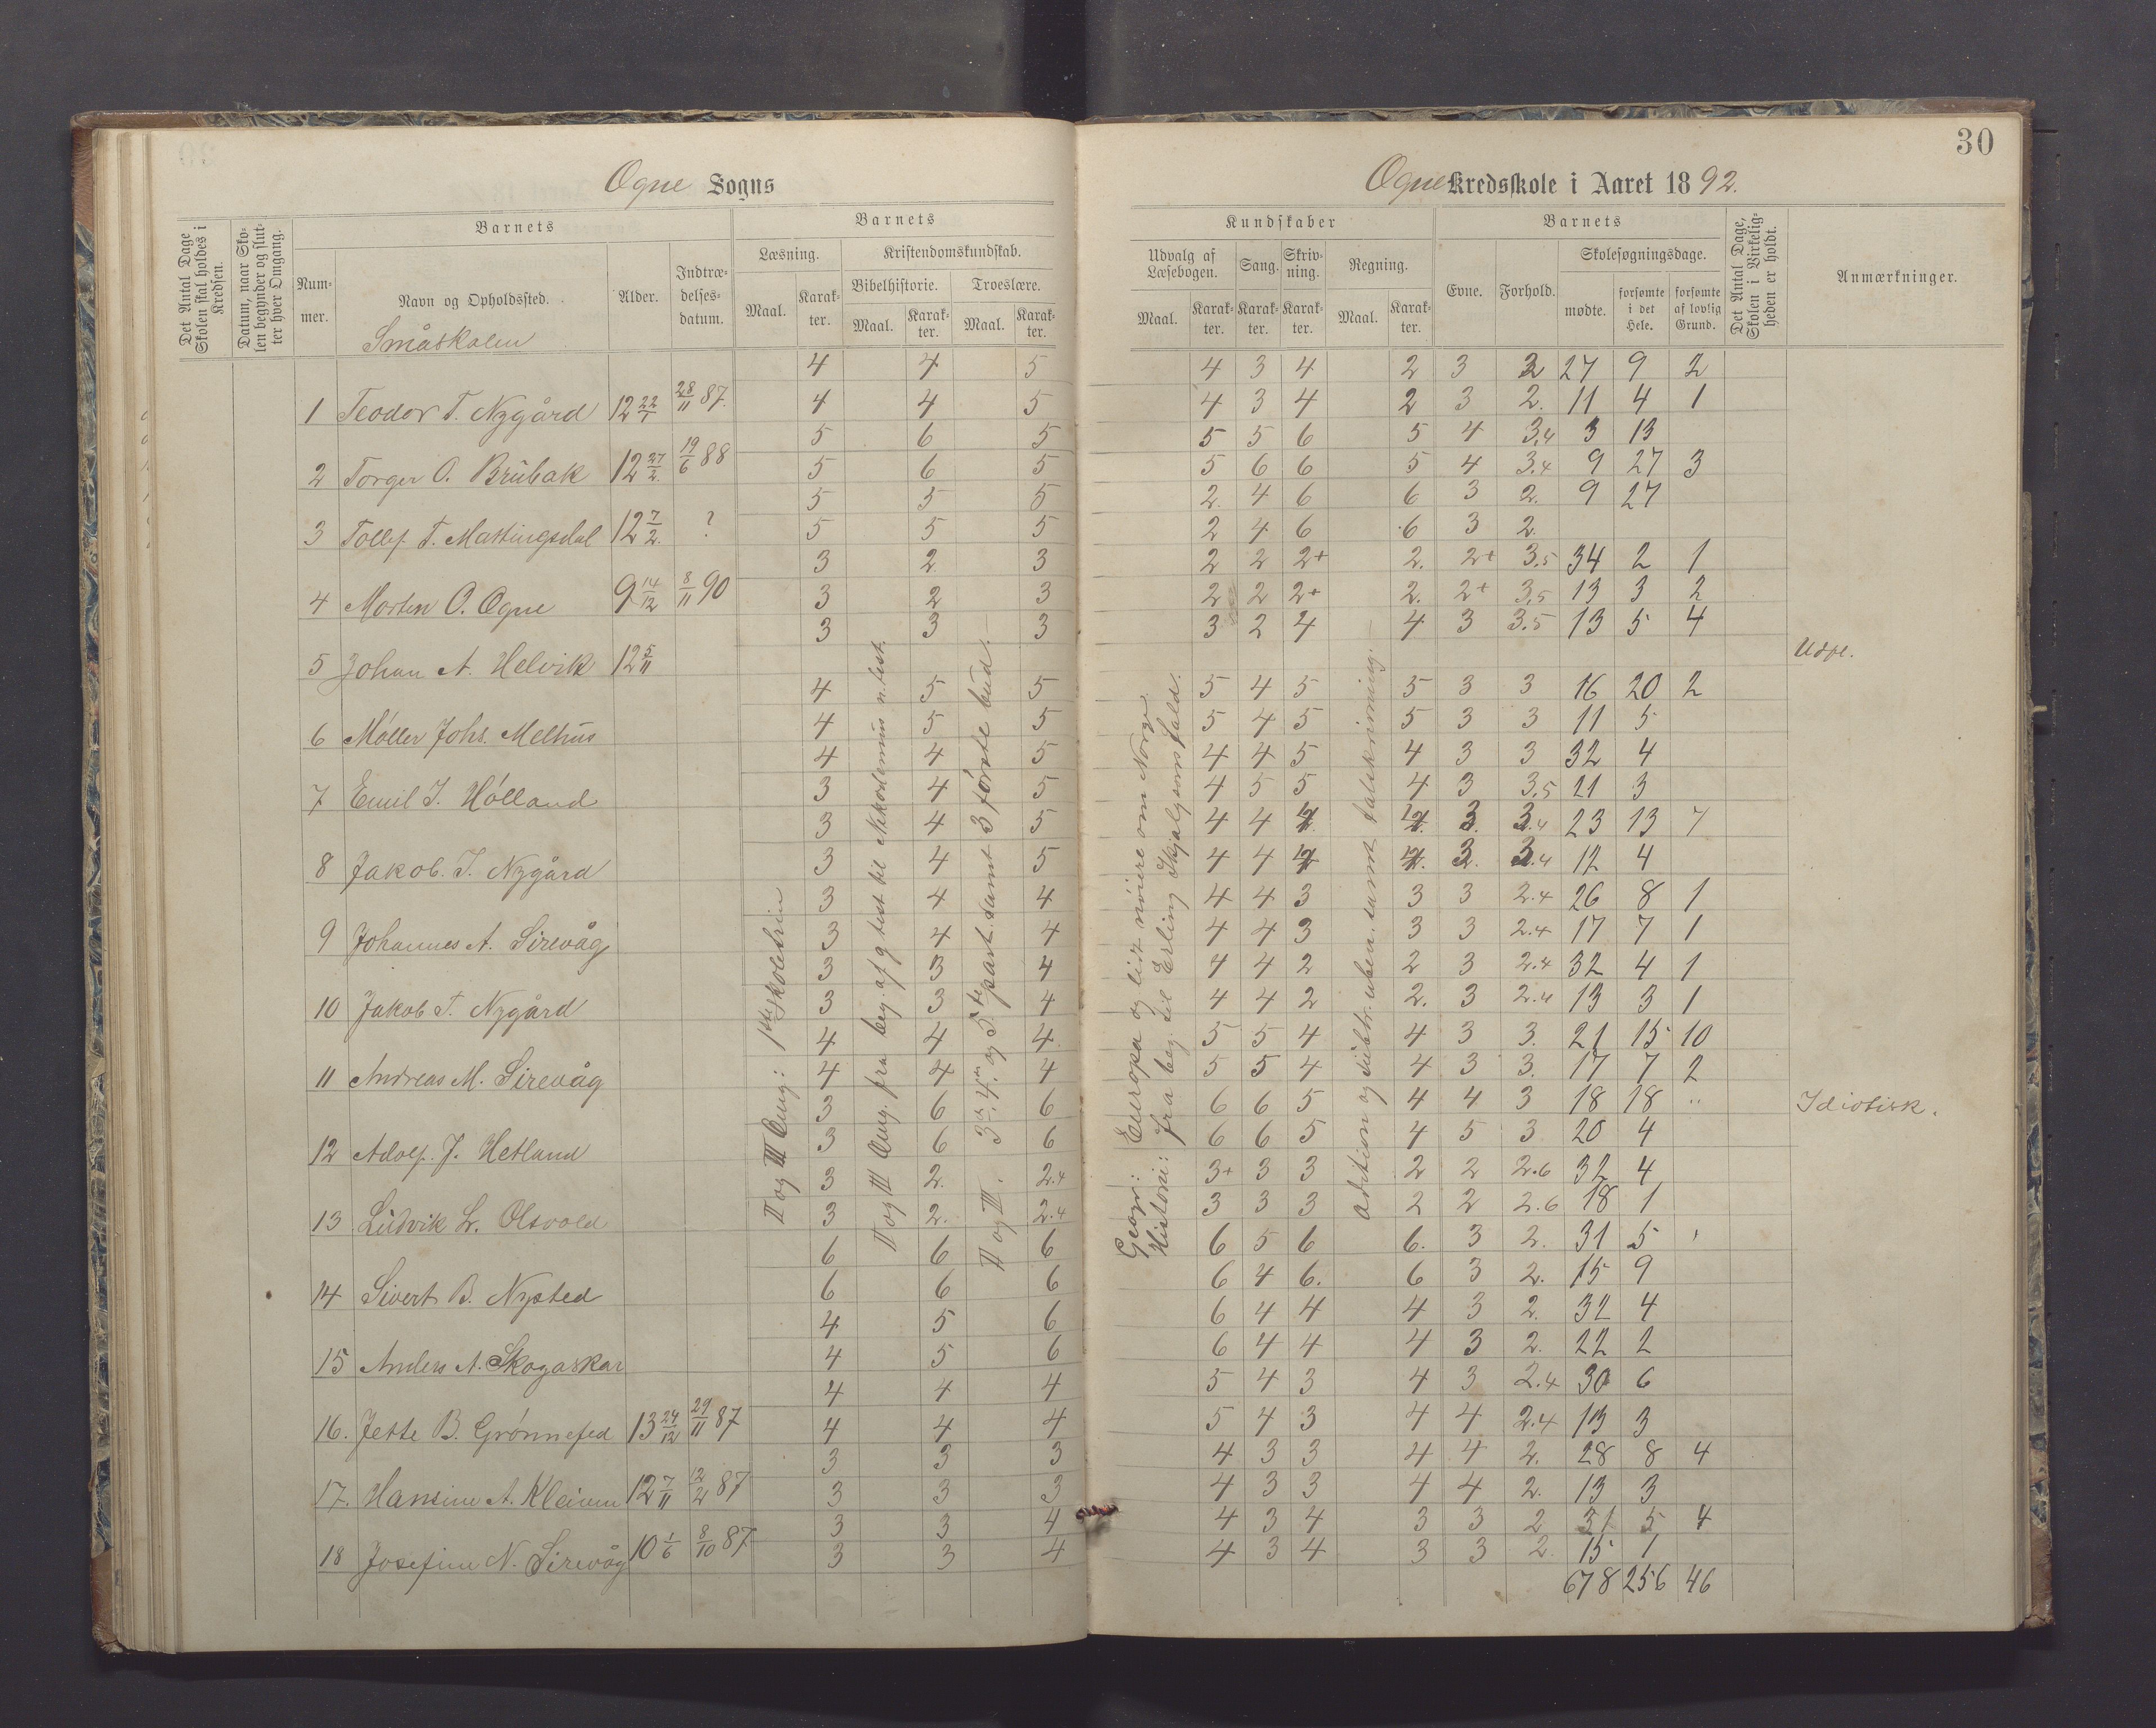 30
Ogne Sogns
Ogne Kredsskole i Aaret 1892.
Det Antal Dage Skolen skal holdes i Kredsen.
Datum, naar Skolen begynder og slutter hver Omgang.
Barnets
Nummer.
Navn og Opholdssted.
Alder.
Indtrædelsesdatum.
Barnets
Læsning.
Maal.
Karakter.
Kristendomskundskab.
Bibelhistorie.
Maal.
Karakter.
Troeslære.
Maal.
Karakter.
Kundskaber
Udvalg af Læsebogen.
Maal.
Karakter.
Sang.
Karakter.
Skrivning.
Karakter.
Regning.
Maal.
Karakter.
Barnets
Evne.
Forhold.
Skolesøgningsdage.
mødte.
forsømte i det Hele.
forsømte af lovlig Grund.
Det Antal Dage, Skolen i Virkeligheden er holdt.
Anmærkninger.
Småskolen
4 4 5 4 3 4 2 3 2 27 9 2
1 Teodor T. Nygård 12 22/1 28/11 87. 4 4 5 4 3 4 2 3 2. 11 4 1
5 6 5 5 5 6 5 4 3.4 3 13
2 Torger O. Brubak 12 27/2. 19/6 88 5 6 5 5 6 6 5 4 3.4 9 27 3
5 5 5 2. 4 6 6 3 2. 9 27
3 Tollef T. Mattingsdal 12 7/2. ? 5 5 5 2 4 6 6 3 2.
3 2. 3 2 2 2+ 2. 2+ 3.5 34 2 1
4 Morten O. Ogne 9 14/12 8/11 90 3 2 3 2 2 2+ 2. 2+ 3.5 13 3 2
3 3 3 3 2 4 4 3 3.5 13 5 4
5 Johan A. Helvik 12 5/11 Udfl.
4 5 5 5 4 5 5 3 3 16 20 2
6 Møller Johs. Melhus 4 5 5 5 4 5 5 3 3 11 5
4 4 5 4 4 5 4 3 3 32 4
7 Emil J. Hólland 3 4 5 4 5 5 4 3 3.5 21 3
3 4 5 4 4 3. 3.4 23 13 7
8 Jakob. J. Nygård 3 4 5 4 4 3. 3.4 12 4
3 4 4 4 4 3 3 3 2.4 26 8 1
9 Johannes A. Sirevåg 3 4 4 4 4 3 3 3 2.4 17 7 1
3 3 4 4 4 2 2 3 2.4 32 4 1
10 Jakob T. Nygård 3 3 4 4 4 2 2. 3 2.4 13 3 1
4 4 4. 5 5 4 4 3 3. 21 15 10
11 Andreas M. Sirevåg 4 4 4 5 5 4 4 3 3. 17 7 2
3 6 6 6 6 5 4 4 3 18 18 " Idiotisk.
12 Adolf. J. Hetland 3 6 6 6 6 5 4 5 3 20 4
3 2. 2.4 3+ 3 3 2 2 2.6 32 4
13 Ludvik L. Olsvold 3 2. 2.4 3 3 3 2 2 2.6 18 1
6 6 6 6 5 6 6. 3 2. 31 5
14 Sivert B. Nysted 6 6 6 6 4 6. 6 3 2. 15 9
4 5 6 6 4 4 4 3 2. 32 4
15 Anders A. Skogaskar 4 5 6 6 4 4 4 3 2. 22 2
4 4 4 5 4 3 4 3 2.4 30 6
16. Jette B. Grønnefed 13 24/12 29/11 87 4 4 4 5 4 3 4 4 2.4 13 3
3 3 3 4 3 3 4 4 2. 28 8 4
17. Hansine A. Kleiven 12 7/11 12/2 87 3 3 3 4 3 3 4 4 2. 13 3
3 3 4 4 3 4 3 3 2 31 5 4
18 Josefine N. Sirevåg 10 1/6 8/10 87 3 3 4 4 3 4 3 3 2. 15 1
678 256 46
II og III Omg: 1ste skoletrin
II og III Omg. fra beg. af g test til Nikkodemus n. test.
II og III. 3die, 4de og 5te part. samt 3 første bud.
Geogr: Europa og lidt nøiere om Norge.
Historie: fra beg. til Erling Skjalgsons fald.
Adition og subtr. uben. samt talskrivning.